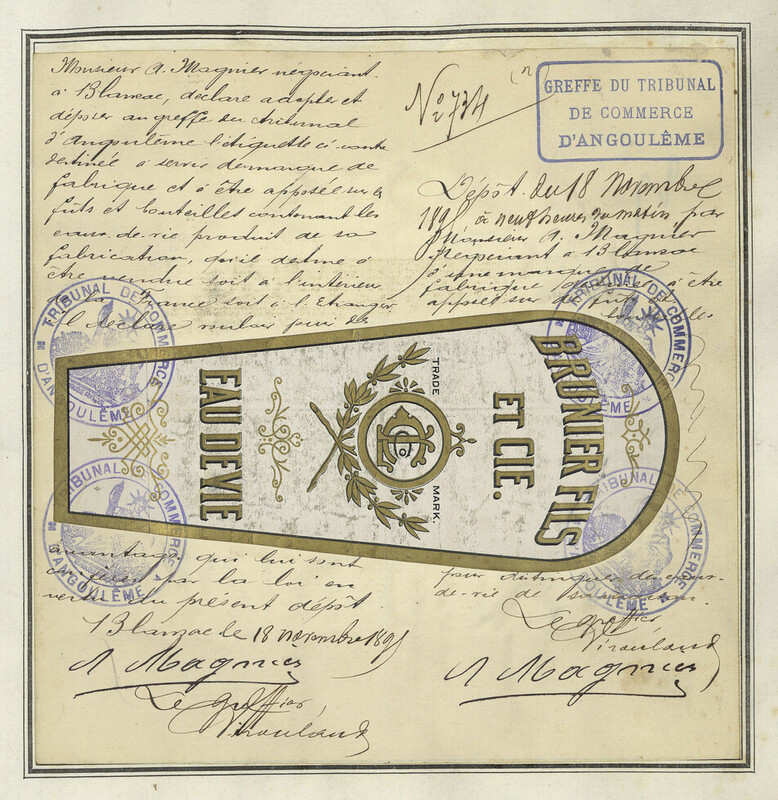 Monsieur A. Magnier négociant
à Blanzac, déclare adopter et
déposer au greffe du tribunal
d'Angoulême l'étiquette ci-contre
destinée à servir de marque de
fabrique et à être apposée sur les
fûts et bouteilles contenant les
eaux-de-vie produit de sa
fabrication, qu'il destine à
être vendue soit à l'intérieur
de la France soit à l'Etranger
Il déclare vouloir jouir des
avantages qui lui sont
conférés par la loi en
vertu du présent dépôt
Blanzac le 18 novembre 189
A Magnier
Le greffier
No 734
GREFFE DU TRIBUNAL
DE COMMERCE
D'ANGOULÊME
Dépôt du 18 Novembre
189 à neuf heures du matin, par
Monsieur A. Magnier
Négociant à Blanzac
d'une marque de
fabrique destinée à être
apposée sur les fûts et bouteilles
pour distinguer des eaux-
de-vie de
Le greffier
A Magnier
BRUNIER FILS
ET CIE.
TRADE MARK.
EAU DE VIE
TRIBUNAL DE COMMERCE
D'ANGOULÊME
TRIBUNAL DE COMMERCE
ME
TRIBUNAL DE COMMERCE
D'ANGOULÊME
TRIBUNAL DE COMMERCE
ULÊME